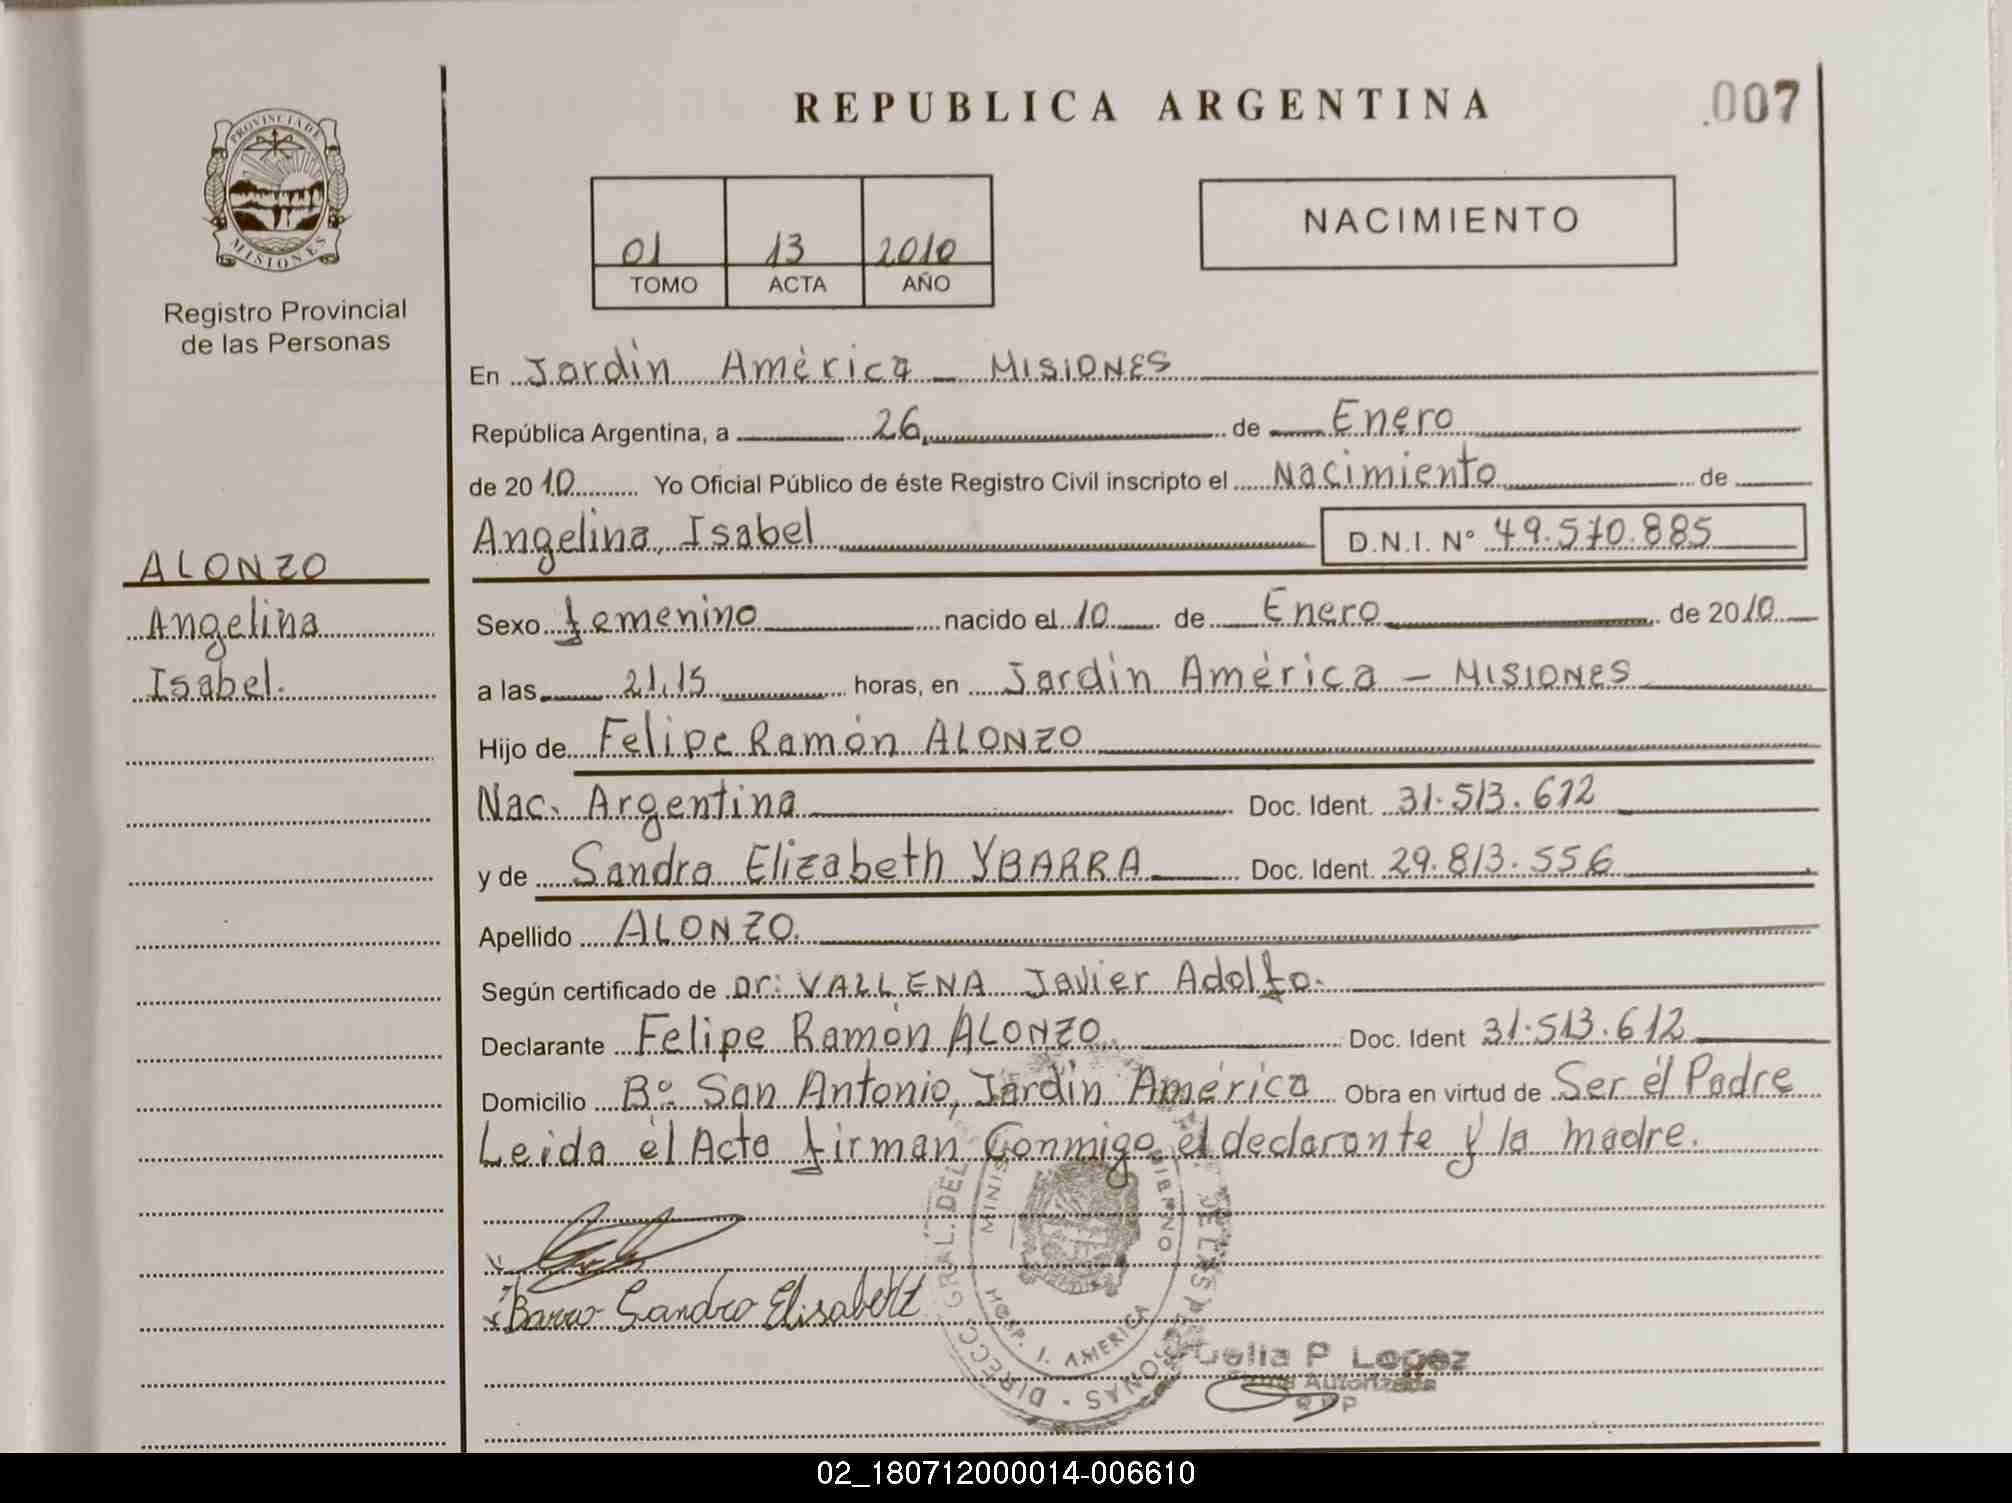 REPUBLICA ARGENTINA
.007
PROVINCIA DE
MISIONES
Registro Provincial
de las Personas
01 13 2010
TOMO ACTA AÑO
NACIMIENTO
En Jardín América - MISIONES
República Argentina, a 26 de Enero
de 2010 Yo Oficial Público de éste Registro Civil inscripto el Nacimiento de
Angelina, Isabel D.N.I. N° 49.570.885
ALONZO
Angelina
Isabel.
Sexo femenino nacido el 10 de Enero de 2010
a las 21,15 horas, en Jardín América - MISIONES
Hijo de Felipe Ramón ALONZO
Nac. Argentina Doc. Ident. 31.513.612
y de Sandra Elizabeth YBARRA Doc. Ident. 29.813.556
Apellido ALONZO.
Según certificado de Dr: VALLENA Javier Adolfo.
Declarante Felipe Ramón ALONZO. Doc. Ident 31.513.612
Domicilio B° San Antonio, Jardín América Obra en virtud de Ser él Padre
Leida él Acta firman Conmigo él declarante y la madre.
Sandra Elisabert
HOSP. J. AMERICA
Lopez
Autorizada
02_180712000014-006610